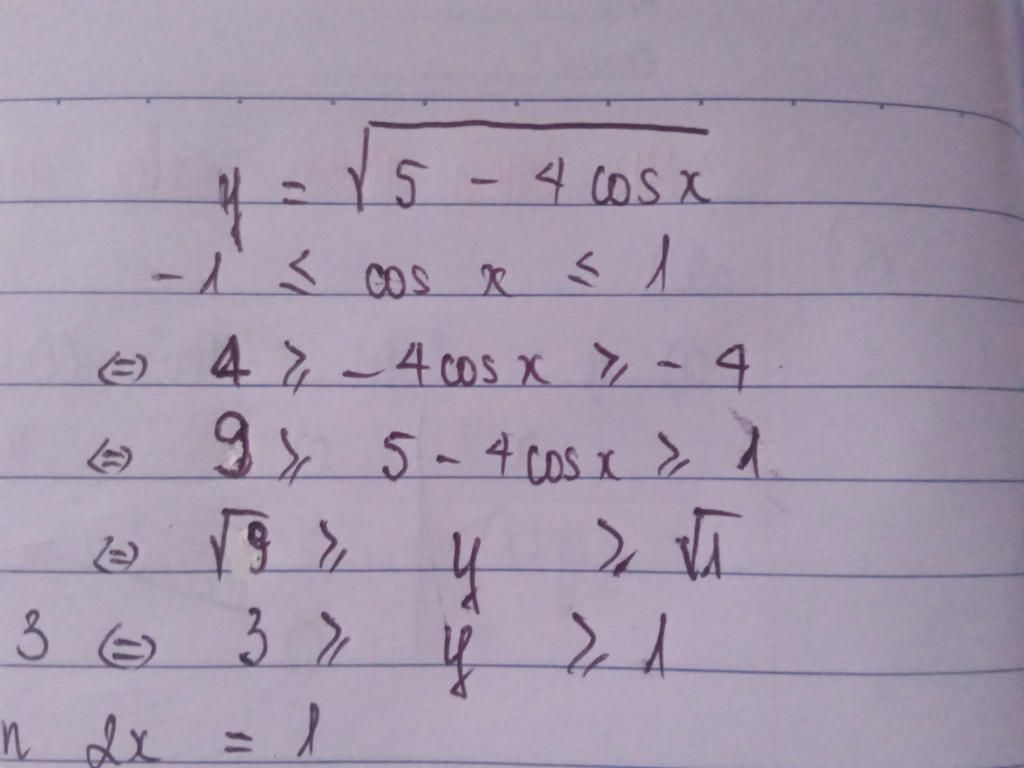 y = √(5 - 4 cos x)
-1 ≤ cos x ≤ 1
⇔ 4 ≥ -4 cos x ≥ -4
⇔ 9 ≥ 5 - 4 cos x ≥ 1
⇔ √9 ≥ y ≥ √1
3 ⇔ 3 ≥ y ≥ 1
n 2x = 1